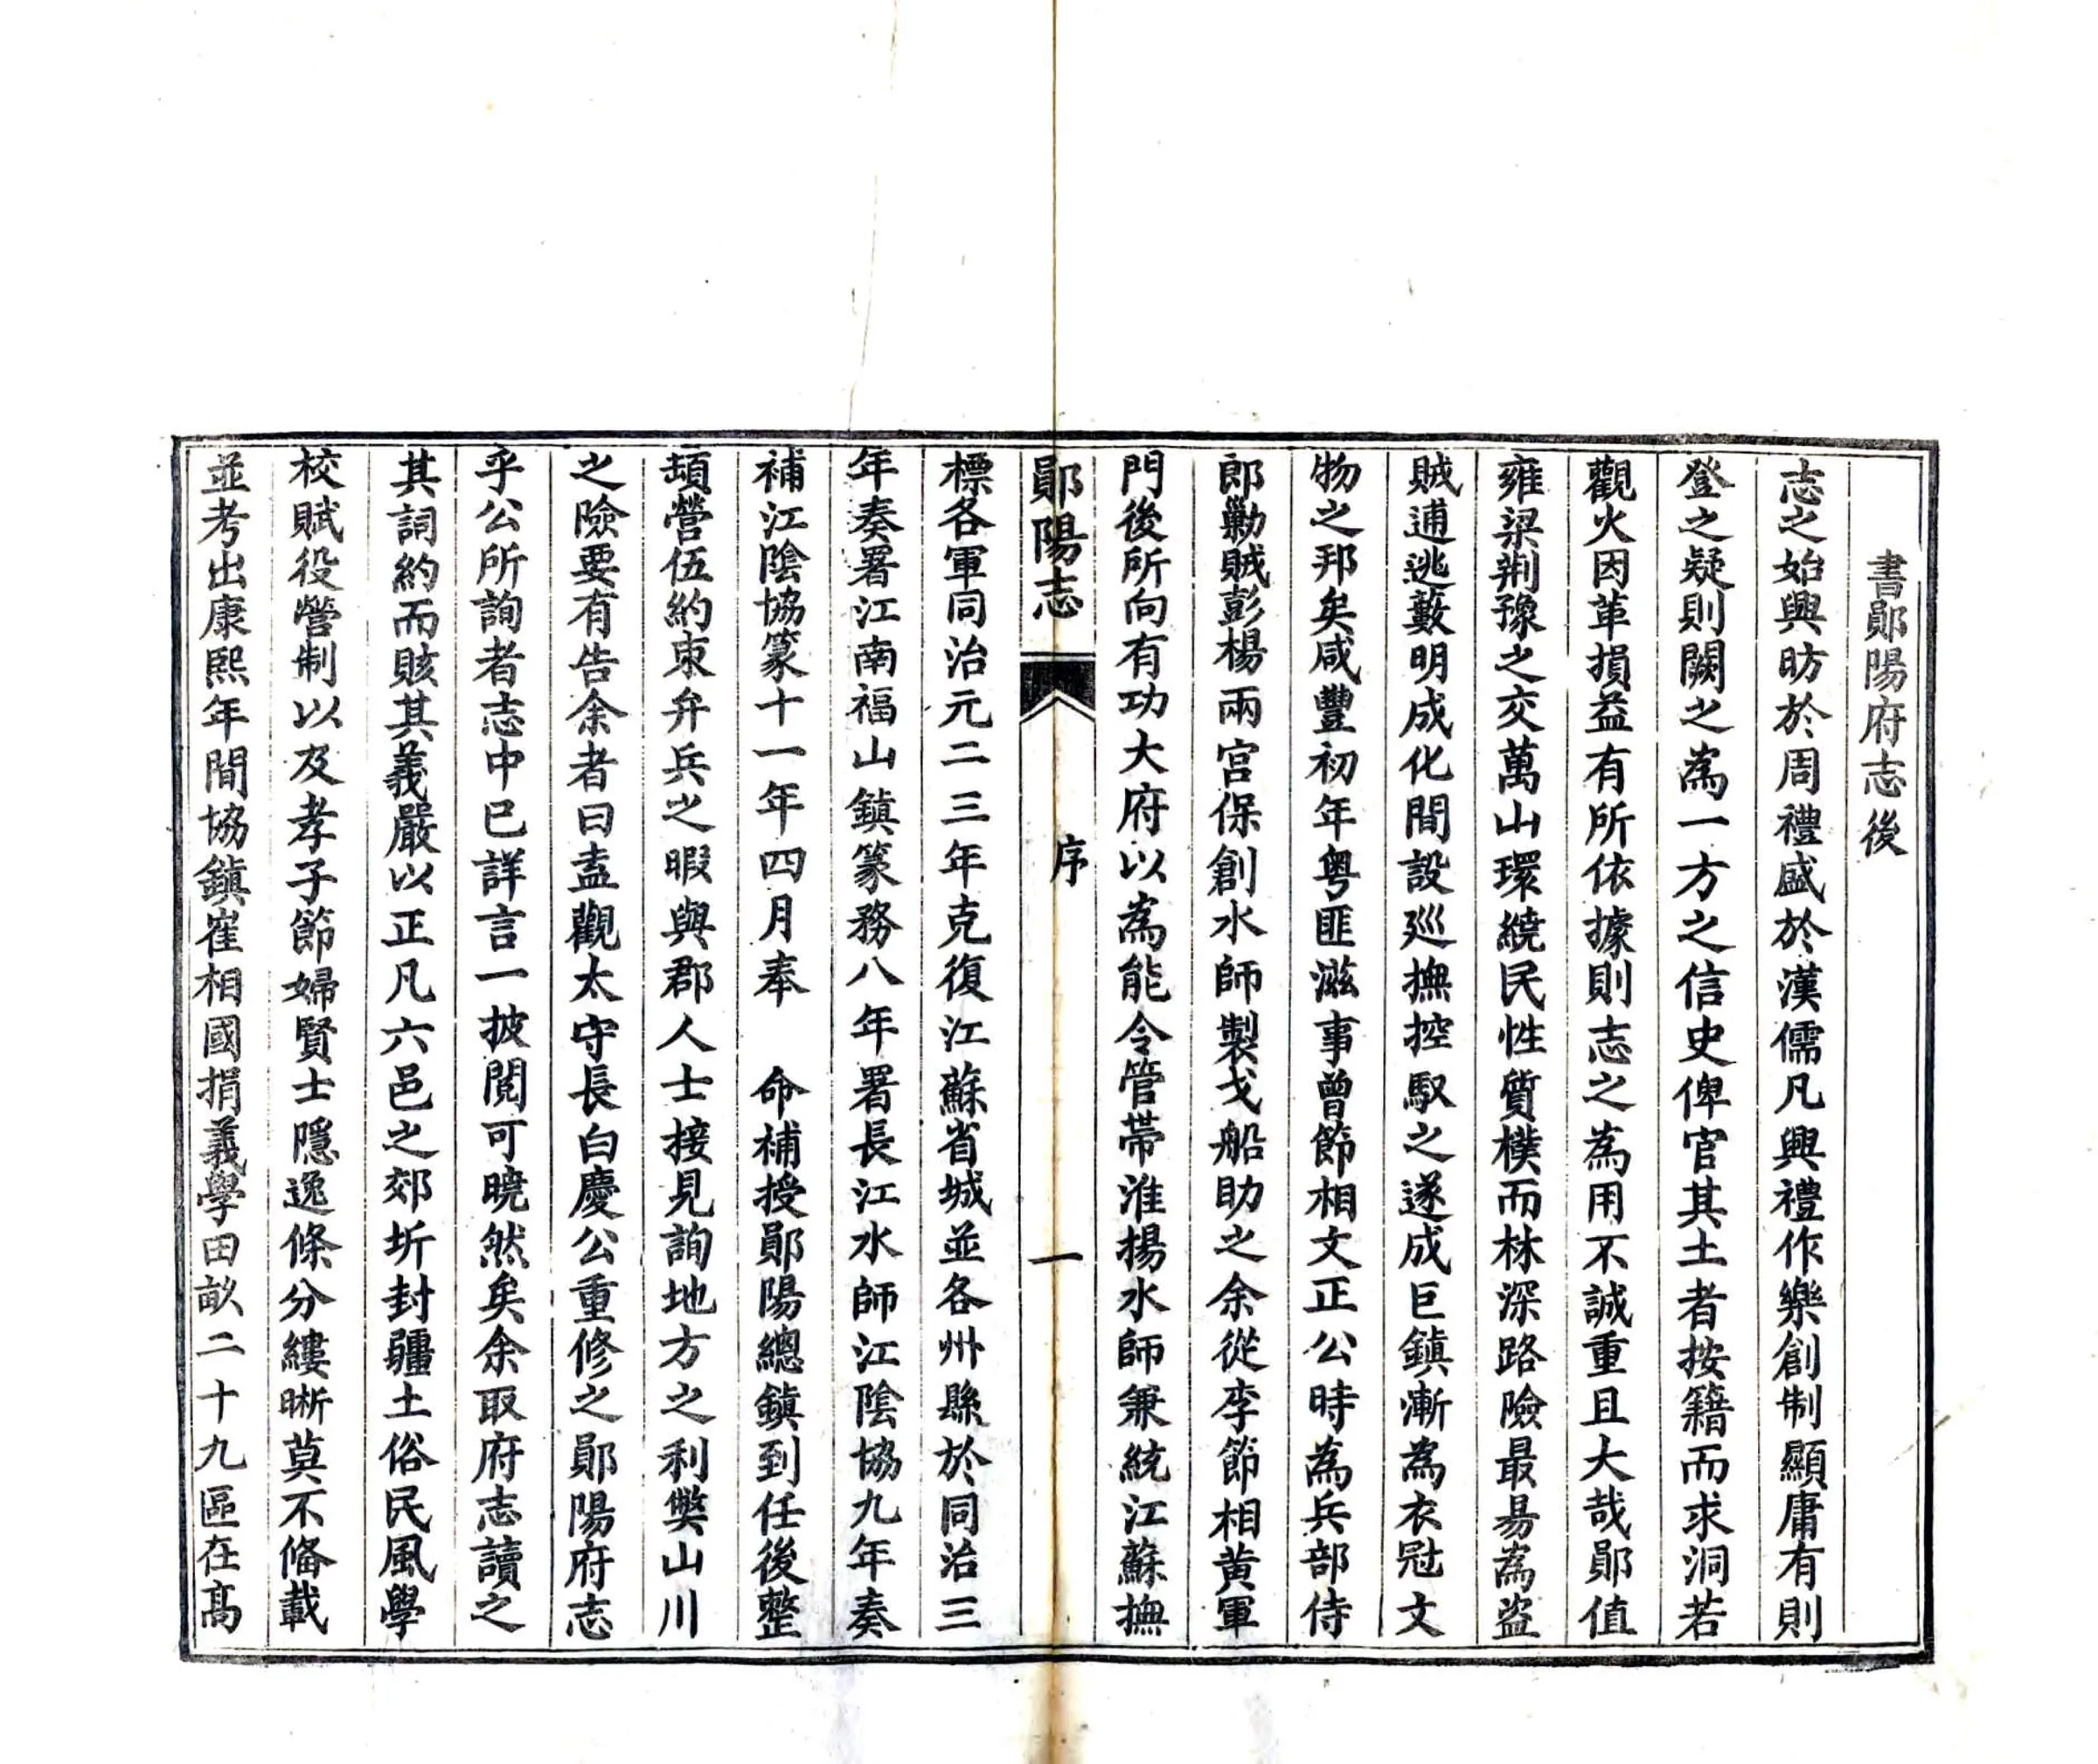 書鄖陽府志後
志之始興昉於周禮盛於漢儒凡興禮作樂創制顯庸有則
登之疑則闕之為一方之信史俾官其土者按籍而求洞若
觀火因革損益有所依據則志之為用不誠重且大哉鄖值
雍梁荆豫之交萬山環繞民性質樸而林深路險最易為盗
賊逋逃藪明成化間設巡撫控馭之遂成巨鎮漸為衣冠文
物之邦矣咸豐初年粤匪滋事曾節相文正公時為兵部侍
郎勦賊彭楊兩宫保創水師製戈船助之余從李節相黄軍
門後所向有功大府以為能令管帶淮揚水師兼統江蘇撫
鄖陽志
序
一
標各軍同治元二三年克復江蘇省城並各州縣於同治三
年奏署江南福山鎮篆務八年署長江水師江陰協九年奏
補江陰協篆十一年四月奉　命補授鄖陽總鎮到任後整
頓營伍約束弁兵之暇與郡人士接見詢地方之利弊山川
之險要有告余者曰盍觀太守長白慶公重修之鄖陽府志
乎公所詢者志中已詳言一披閱可曉然矣余取府志讀之
其詞約而賅其義嚴以正凡六邑之郊圻封疆土俗民風學
校賦役營制以及孝子節婦賢士隱逸條分縷晰莫不備載
並考出康熙年間協鎮崔相國捐義學田畝二十九區在髙